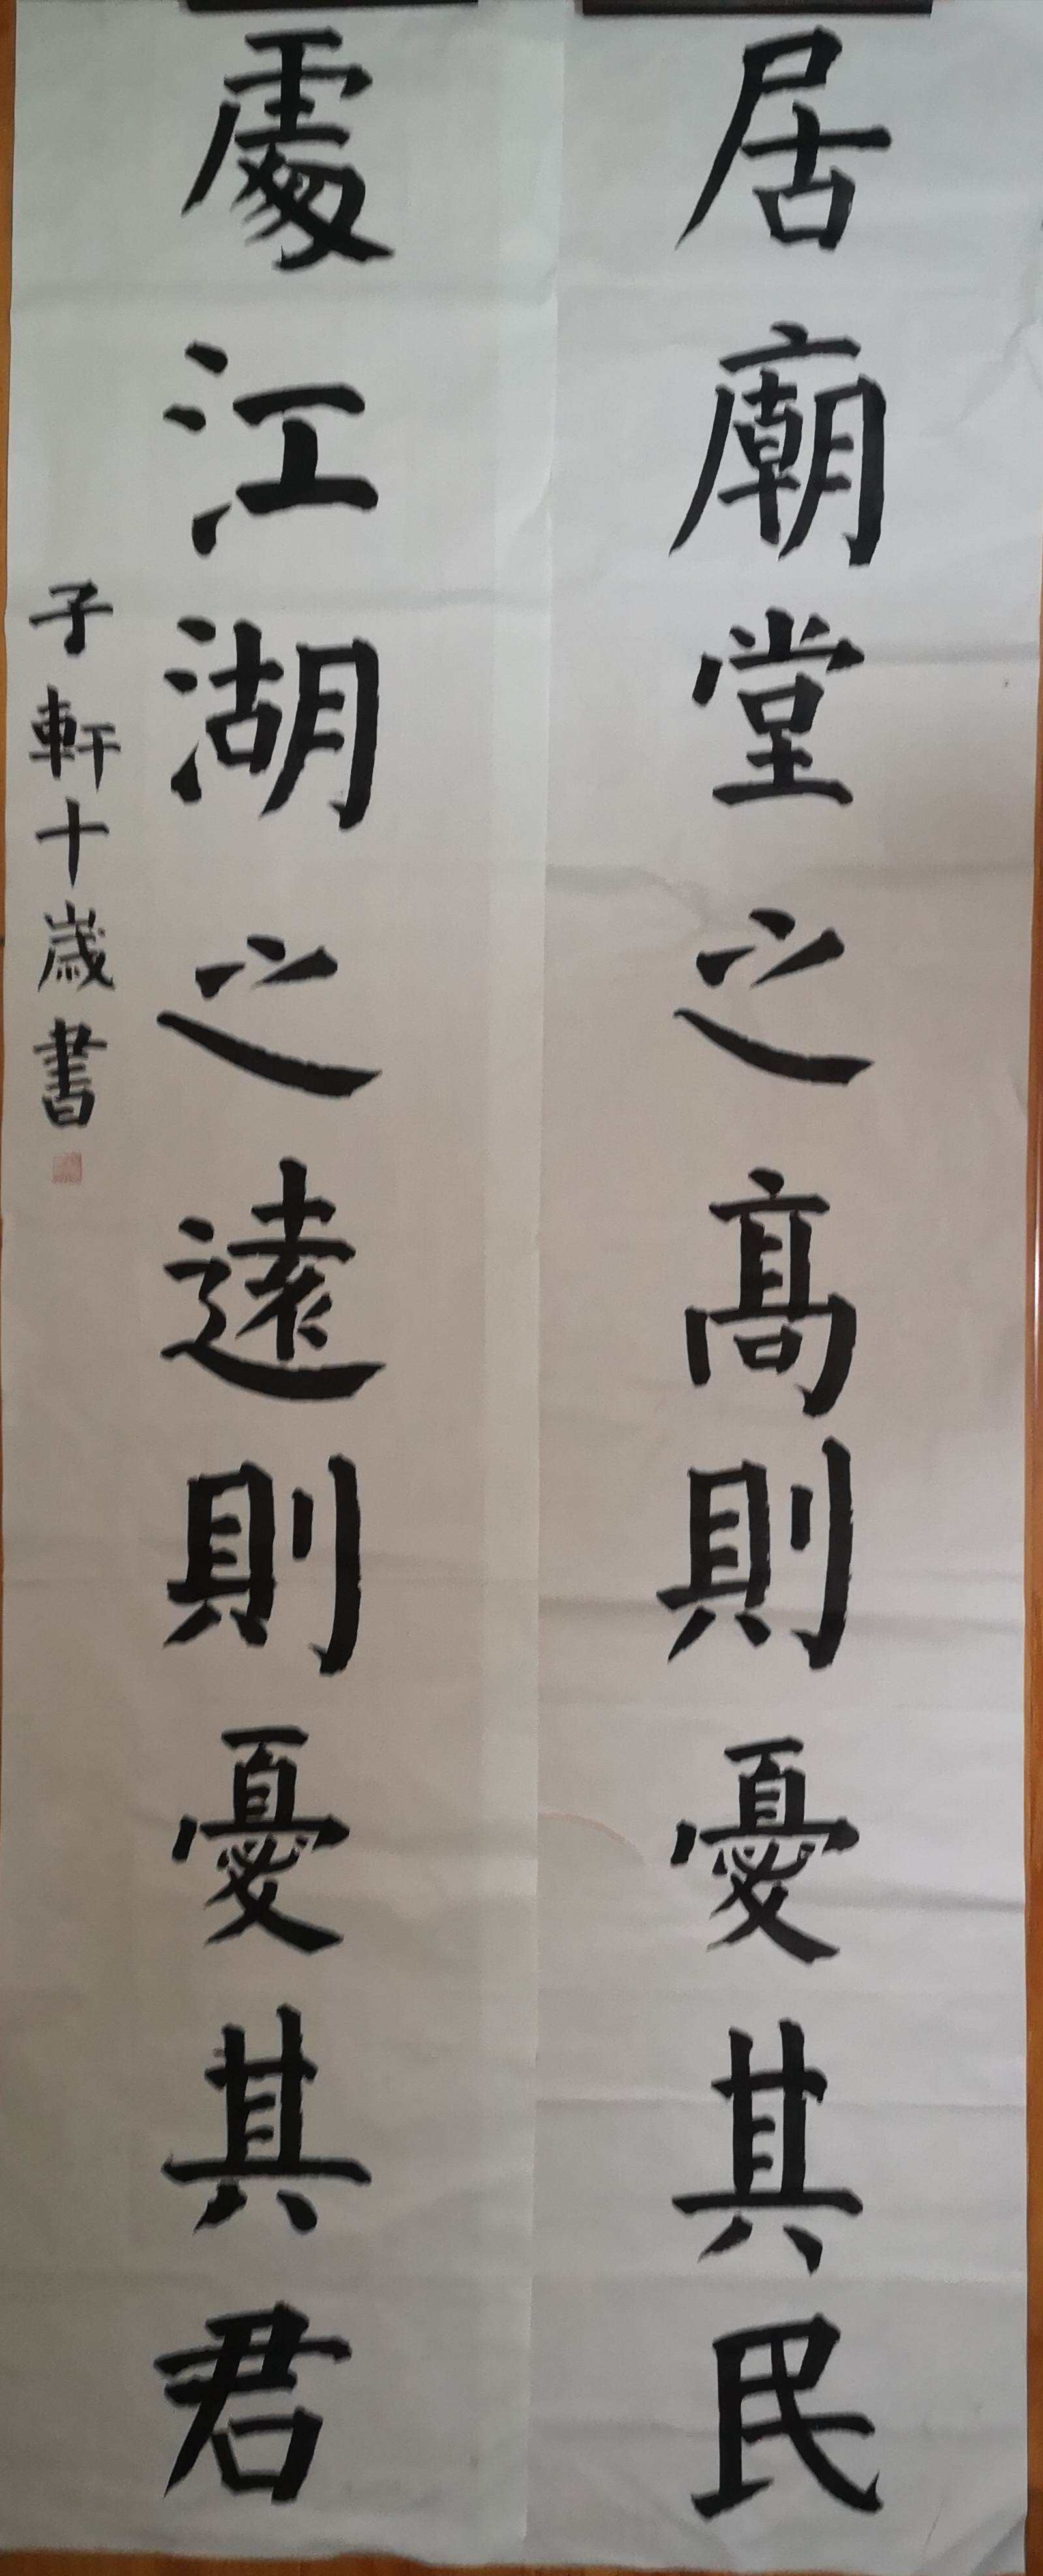 居廟堂之髙則憂其民
處江湖之遠則憂其君
子軒十歲書